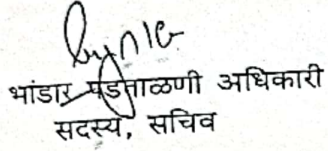 भांडार पडताळणी अधिकारी
सदस्य, सचिव